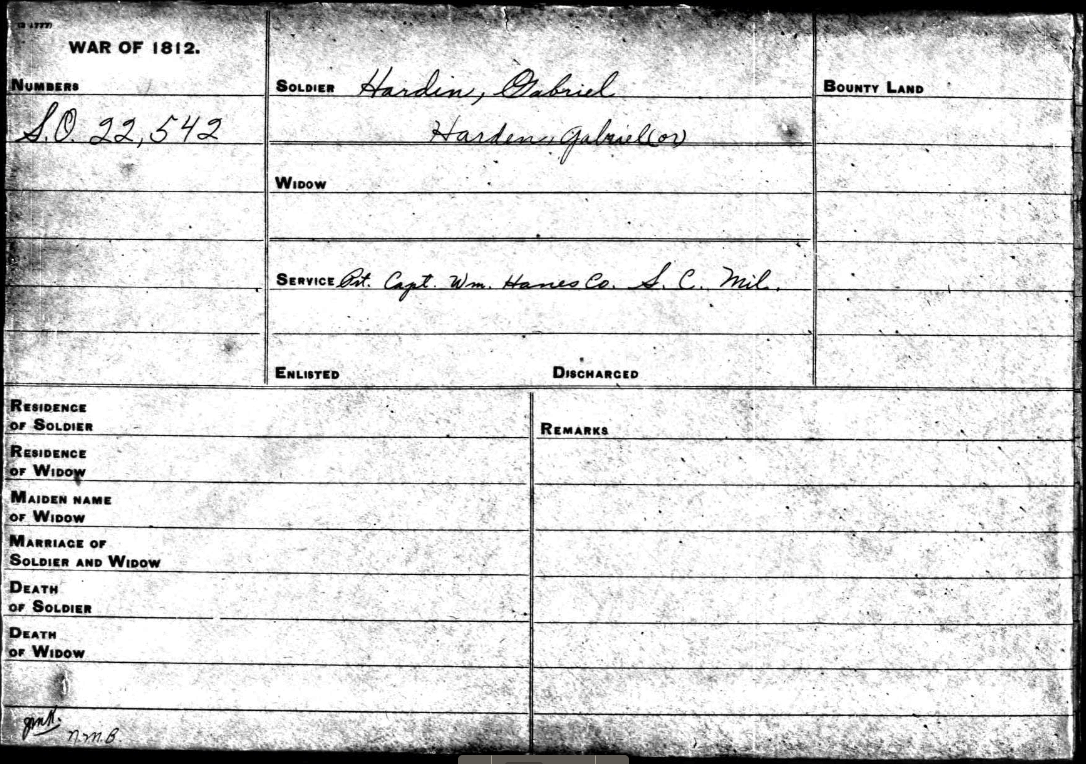 (3-1777)
WAR OF 1812.
NUMBERS
S.O. 22,542
SOLDIER Hardin, Gabriel
Harden, Gabriel (or)
WIDOW
SERVICE Pvt. Capt. Wm. Hanes Co. S. C. Mil.
ENLISTED DISCHARGED
BOUNTY LAND
RESIDENCE
OF SOLDIER
RESIDENCE
OF WIDOW
MAIDEN NAME
OF WIDOW
MARRIAGE OF
SOLDIER AND WIDOW
DEATH
OF SOLDIER
DEATH
OF WIDOW
N.M.B.
REMARKS